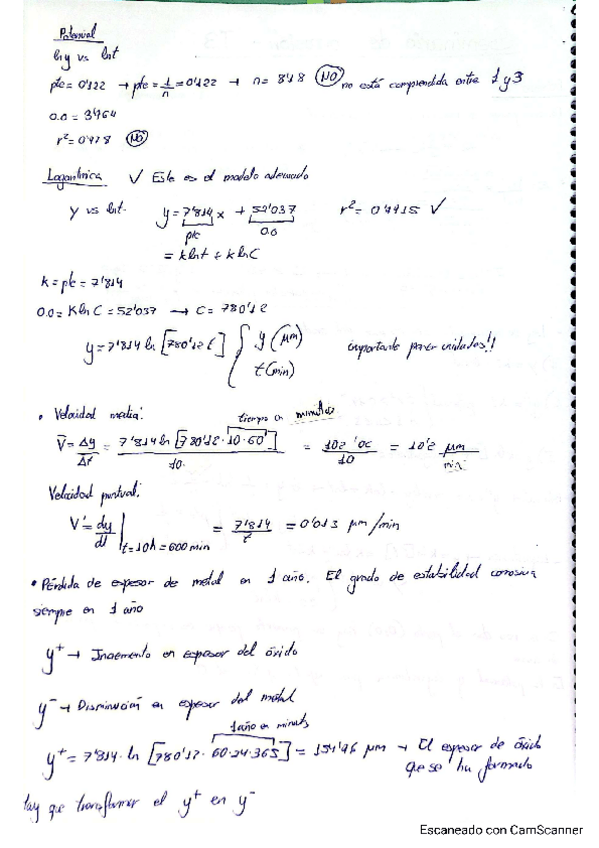 Potencial
ln y vs lnt
pte = 0'122 → pte = 1/n = 0'122 → n = 8'18 (NO) no está comprendida entre 1 y 3
0.0 = 3'964
r² = 0'978 (NO)
Logarítmica ✓ Este es el modelo adecuado
y vs lnt y = 7'814 x + 52'037 r² = 0'9915 ✓
pte 0.0
= k lnt + k lnC
k = pte = 7'814
0.0 = K ln C = 52'037 → C = 780'12
y = 7'814 ln [780'12 t] { y (μm)
t (min)
importante poner unidades!!
• Velocidad media: tiempo en minutos
V̄ = Δy/Δt = 7'814 ln [780'12 · 10 · 60]/10 = 102'00/10 = 10'2 μm/min
Velocidad puntual:
V' = dy/dt | t = 10h = 600 min = 7'814/t = 0'013 μm/min
• Pérdida de espesor de metal en 1 año. El grado de estabilidad corrosiva
siempre en 1 año
y⁺ → Incremento en espesor del óxido
y⁻ → Disminución en espesor del metal
1 año en minutos
y⁺ = 7'814 · ln [780'12 · 60·24·365] = 154'96 μm → El espesor de óxido
que se ha formado
hay que transformar el y⁺ en y⁻
Escaneado con CamScanner